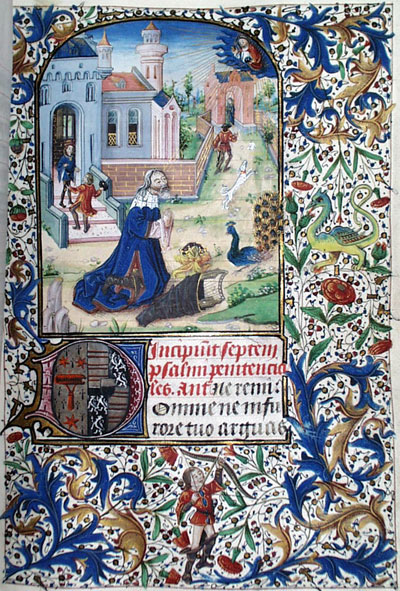 Incipiūt septem
psalmi penitencia
les. Ant. ne remi
DOmine ne infu
rore tuo arguas